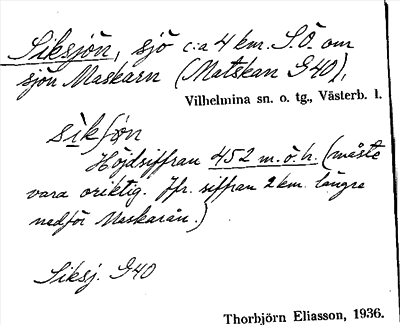 Siksjön, sjö c:a 4 km. S.Ö. om
sjön Maskarn (Matskan G40),
Vilhelmina sn. o. tg., Västerb. l.
sìkʃøn
Höjdsiffran 452 m.ö.h. (måste
vara oriktig. Jfr. siffran 2 km. längre
nedför Maskarån.)
Siksj. G40
Thorbjörn Eliasson, 1936.